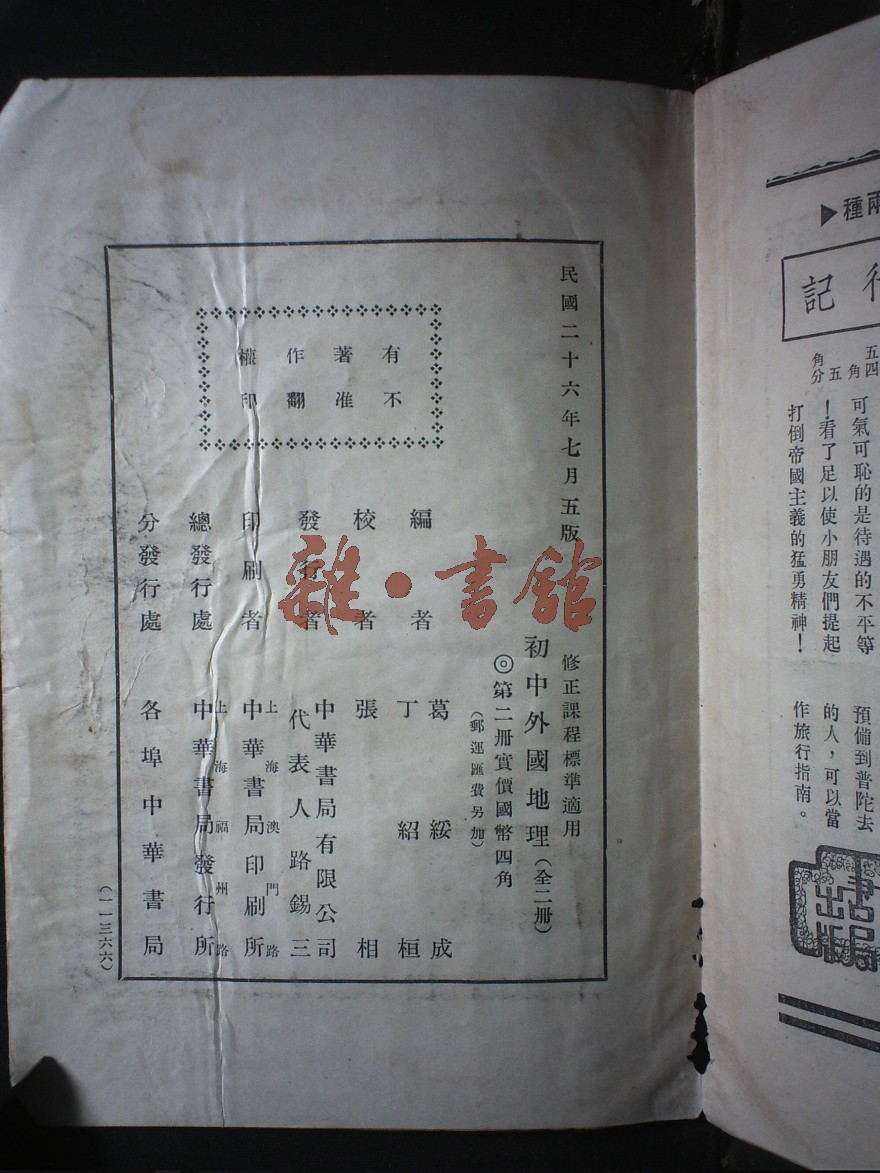 民國二十六年七月五版
修正課程標準適用
初中外國地理（全二冊）
◎第二冊實價國幣四角
（郵運匯費另加）
有著作權
不准翻印
編者
葛綏成
丁紹桓
校者
張相
發行者
中華書局有限公司
代表人路錫三
印刷者
上海澳門路
中華書局印刷所
總發行處
上海福州路
中華書局發行所
分發行處
各埠中華書局
（一一三六六）
雜·書館
兩種▶
行記
五四
角五
角分
可氣可恥的是待遇的不平等
！看了足以使小朋友們提起
打倒帝國主義的猛勇精神！
預備到普陀去
的人，可以當
作旅行指南。
書局
出版